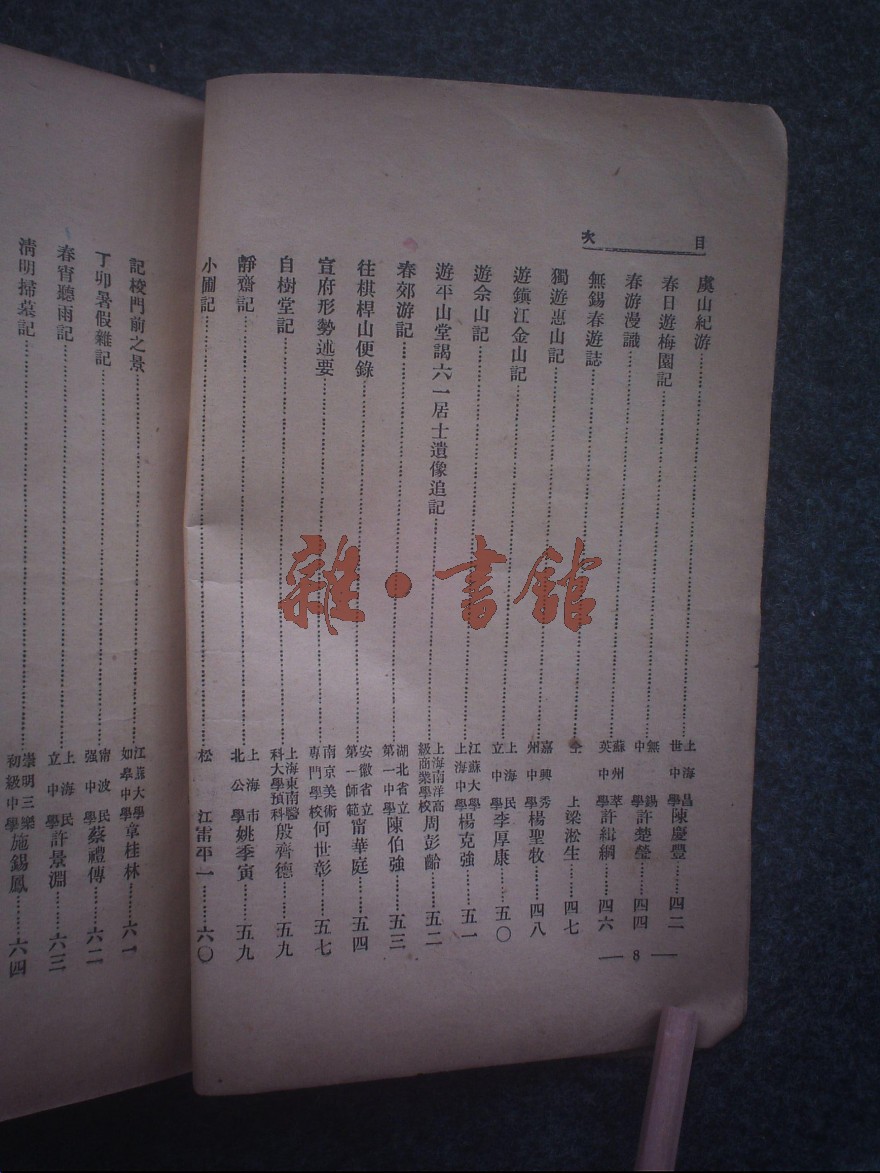 目次
虞山紀游……上海昌世中學陳慶豐……四二
春日遊梅園記……無錫中學許楚瑩……四四
春游漫識……蘇州萃英中學許緝綱……四六
無錫春遊誌……仝上梁淞生……四七
獨遊惠山記……嘉興秀州中學楊聖牧……四八
遊鎭江金山記……上海民立中學李厚康……五〇
遊佘山記……江蘇大學上海中學楊克強……五一
遊平山堂謁六一居士遺像追記……上海南洋高級商業學校周彭齡……五二
春郊游記……湖北省立第一中學陳伯強……五三
往棋桿山便錄……安徽省立第一師範甯華庭……五四
宣府形勢述要……南京美術專門學校何世彰……五七
自樹堂記……上海東南醫科大學預科殷齊德……五九
靜齋記……上海市北公學姚季寅……五九
小圃記……松江雷平一……六〇
8
記校門前之景……江蘇大學如皋中學章桂林……六一
丁卯暑假雜記……甯波民强中學蔡禮傳……六二
春宵聽雨記……上海民立中學許景淵……六三
淸明掃墓記……崇明三樂初級中學施錫鳳……六四
雜·書館